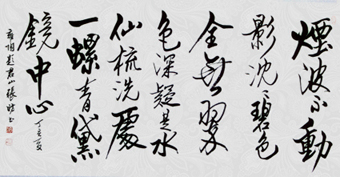 煙波不動
影沈〻碧色
全無翠
色深疑是水
仙梳洗處
一螺青黛
鏡中心 丁亥夏
雍陶題君山 張